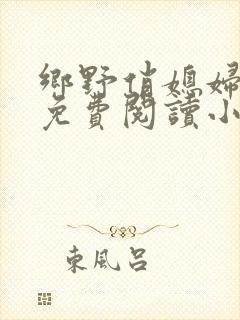 鄉野俏媳婦
免費閱讀小
東風呂